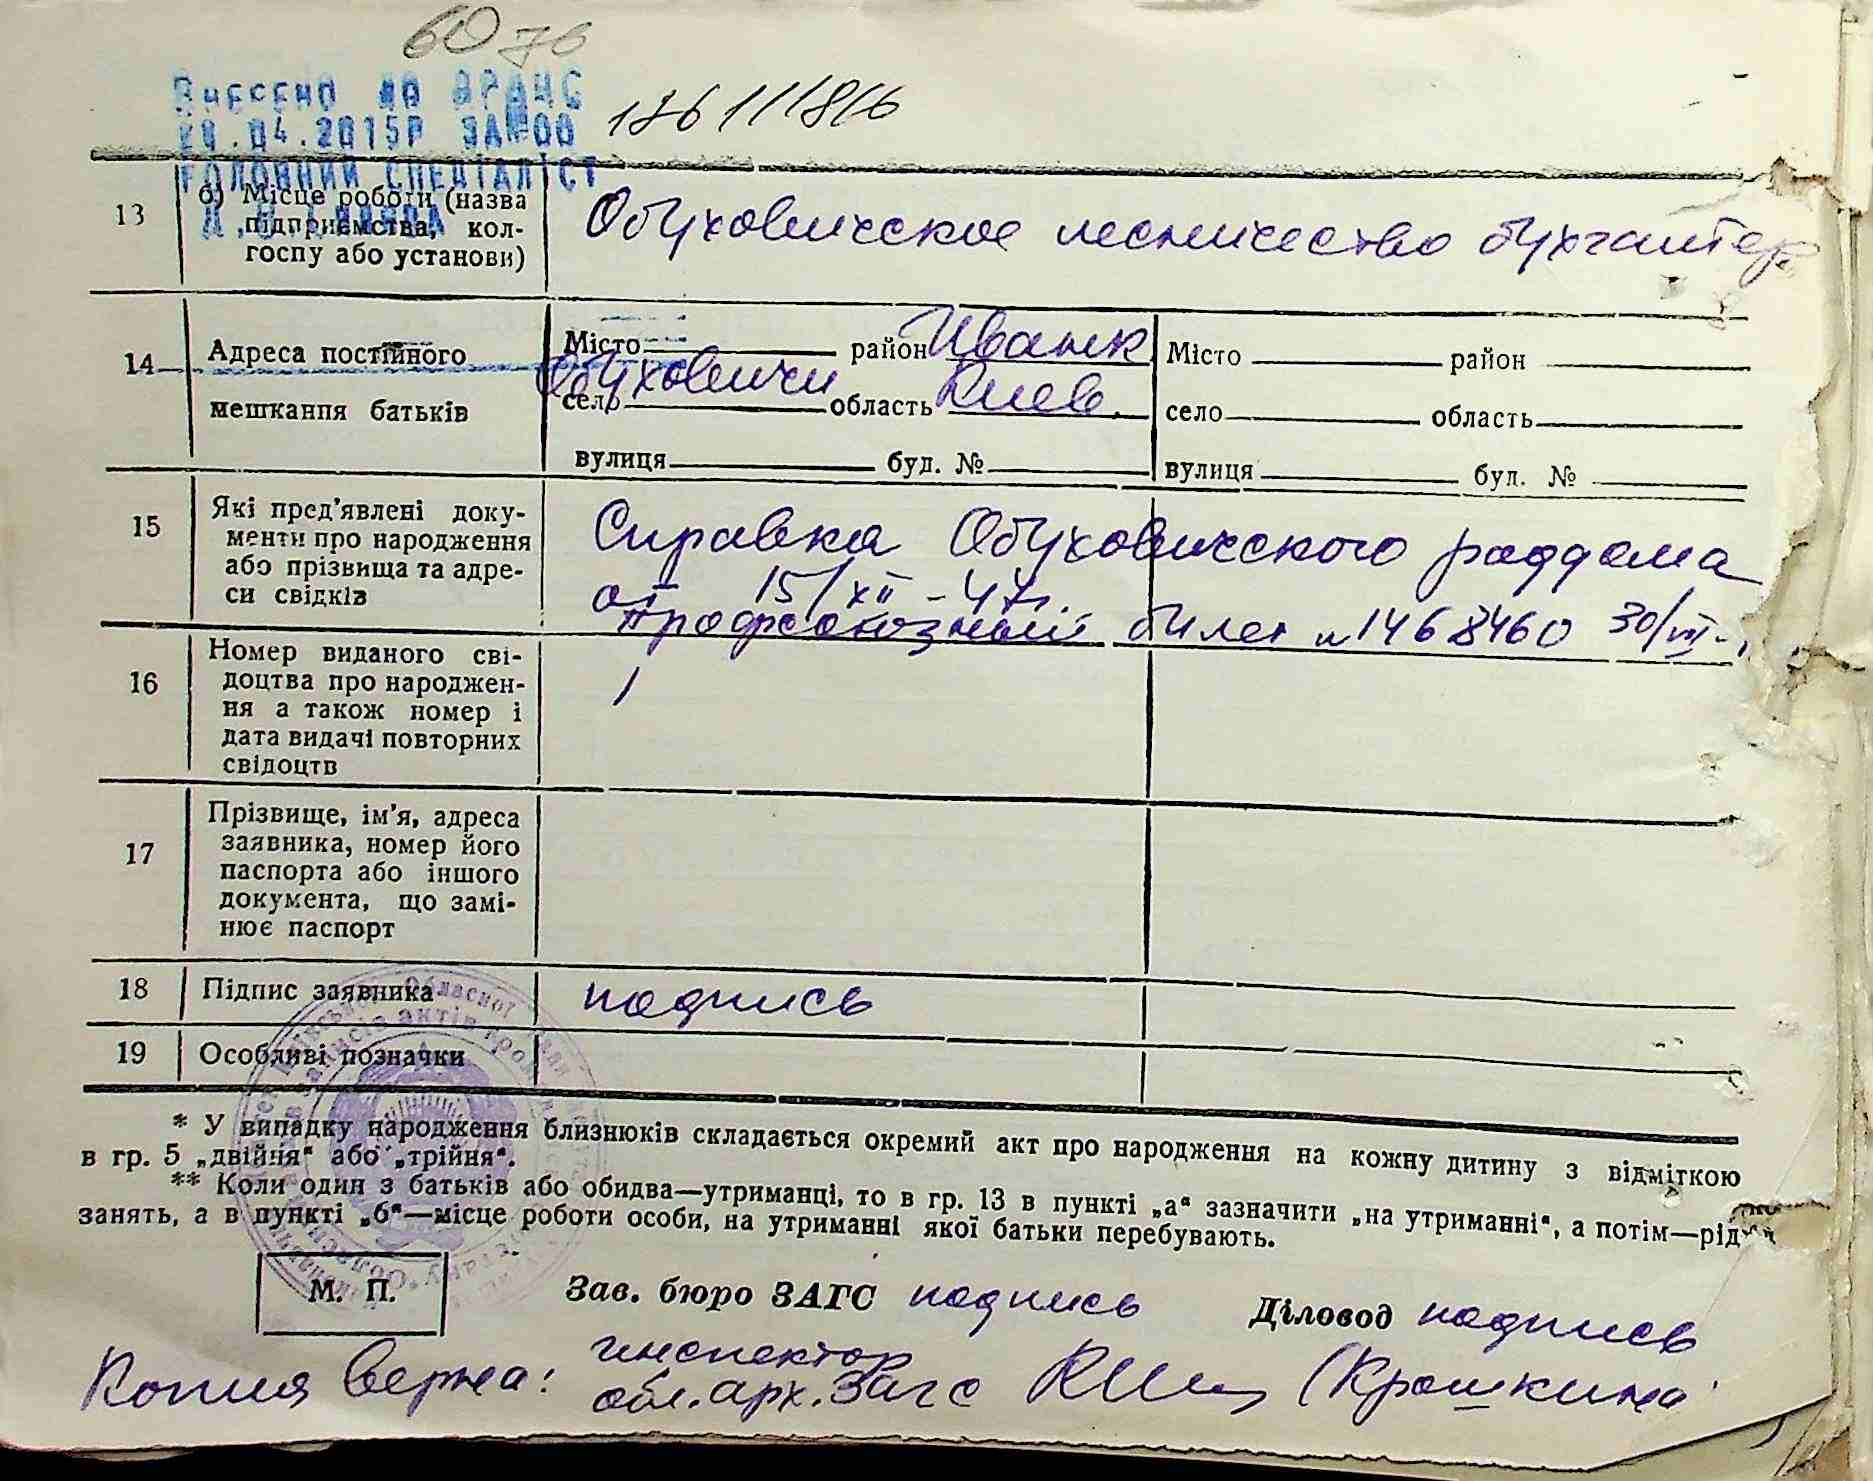 6076
Внесено до ДРАЦС
20.04.2015р ЗА №00 136111816
ГОЛОВНИЙ СПЕЦІАЛІСТ
13 б) Місце роботи (назва підприємства, колгоспу або установи) Обуховическое лесничество бухгалтер
14 Адреса постійного мешкання батьків
Місто район Иванк Місто район
село Обуховичи область Киев. село область
вулиця буд. № вулиця буд. №
15 Які пред'явлені доку-
менти про народження
або прізвища та адре-
си свідків
Справка Обуховичского роддома
от 15/XII-47г.
Профсоюзный билет №1468460 30/VII-
16 Номер виданого сві-
доцтва про народжен-
ня а також номер і
дата видачі повторних
свідоцтв
17 Прізвище, ім'я, адреса
заявника, номер його
паспорта або іншого
документа, що замі-
нює паспорт
18 Підпис заявника подпись
19 Особливі позначки
* У випадку народження близнюків складається окремий акт про народження на кожну дитину з відміткою
в гр. 5 „двійня“ або „трійня“.
** Коли один з батьків або обидва—утриманці, то в гр. 13 в пункті „а“ зазначити „на утриманні“, а потім—рід
занять, а в пункті „б“—місце роботи особи, на утриманні якої батьки перебувають.
М. П. Зав. бюро ЗАГС подпись Діловод подпись
Копия верна: инспектор
обл.арх.Загс (Крошкина